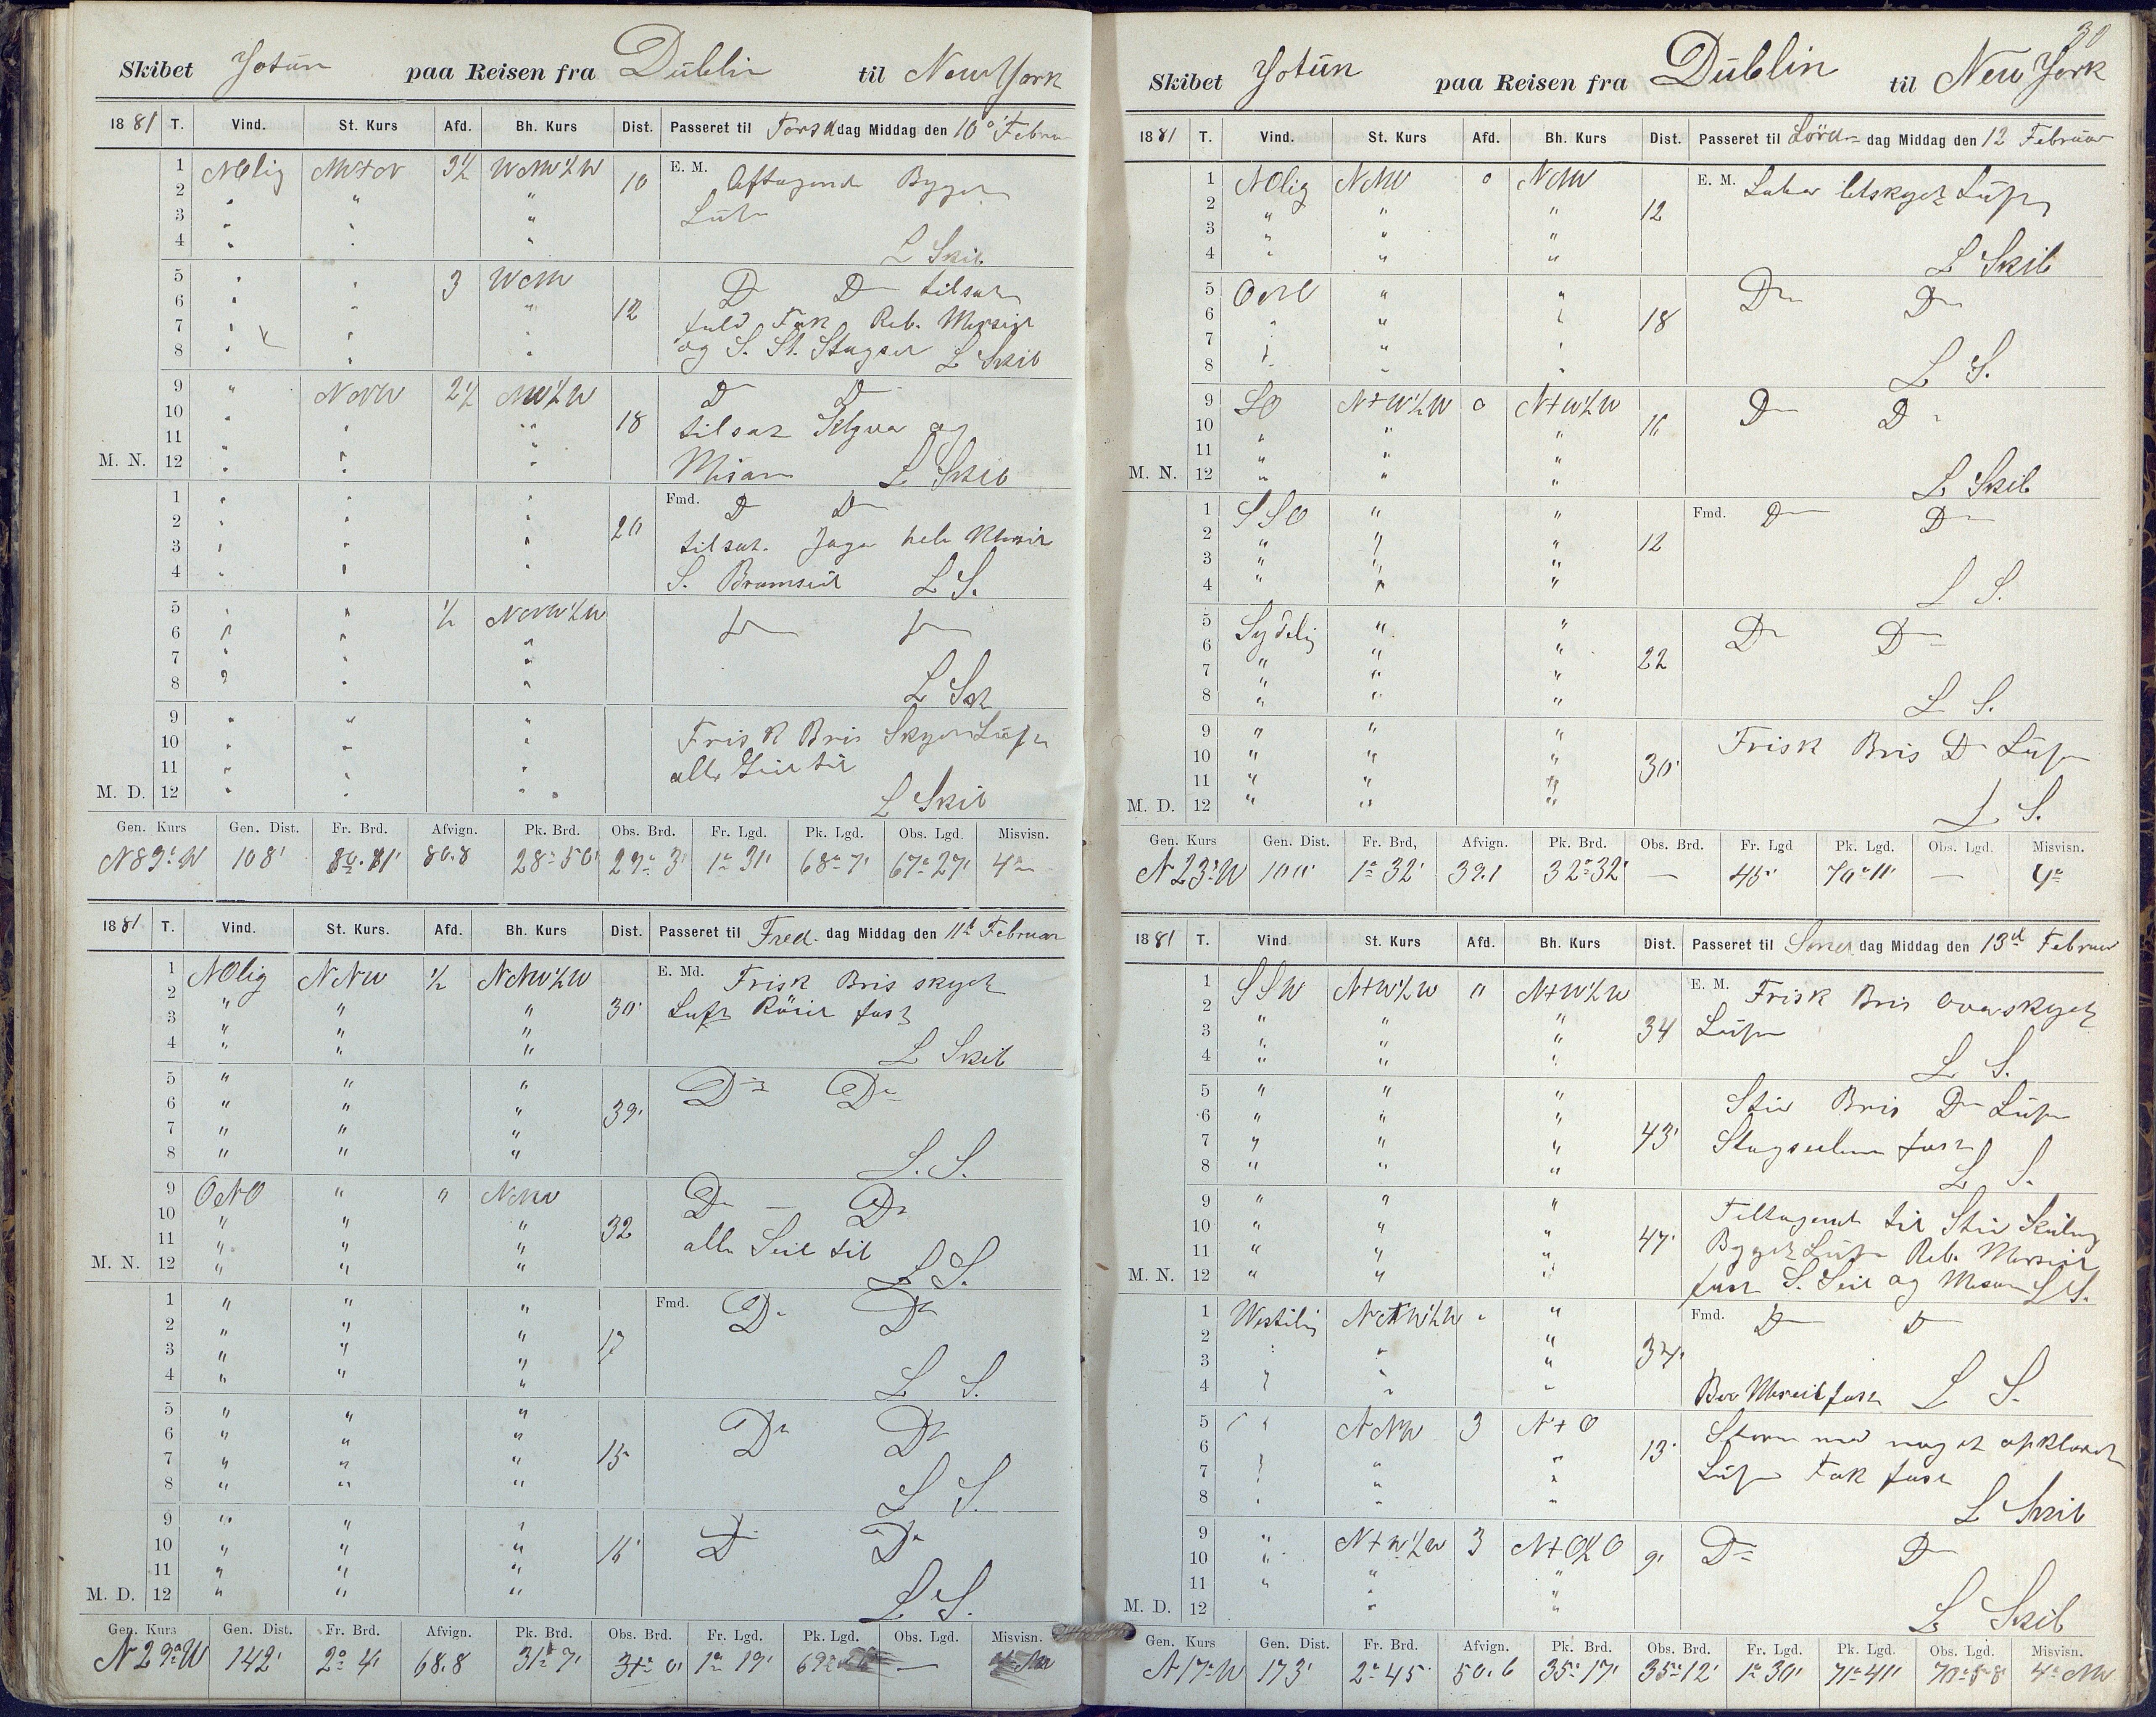 Skibet Jotun paa Reisen fra Dublin til New York
1881 T. Vind. St. Kurs Afd. Bh. Kurs Dist. Passeret til Torsdag Middag den 10de Februar
1 NOlig NW+N 3½ WNW½W 10 E. M. Aftagende Bygget
2 " " "
3 " " " Luft
4 " " " L Skib
5 " " 3 WNW D D tilsat
6 " " " 12 fuld Fok Reb. Mersseil
7 " " "
8 " " " og S. St. Stagseil L Skib
9 " NNW 2½ NW½W D D
10 " " " 18 tilsat Klyver og
11 " " "
M. N. 12 " " " Mesan L Skib
1 " " " Fmd. D D
2 " " " 20
3 " " " tilsat Jager hele Mersseil
4 " " " S. Bramseil L S.
5 " " ½ NNW½W
6 " " " D D
7 " " "
8 " " " L Sk
9 " " " Frisk Bris Skyet Luft
10 " " "
11 " " " alle Seil til
M. D. 12 " " " L Skib
Gen. Kurs Gen. Dist. Fr. Brd. Afvign. Pk. Brd. Obs. Brd. Fr. Lgd. Pk. Lgd. Obs. Lgd. Misvisn.
108' 80.8 28° 50' 29° 3' 1° 31' 68° 7' 67° 27' 4°
1881 T. Vind. St. Kurs. Afd. Bh. Kurs Dist. Passeret til Fredag Middag den 11te Februar
1 NOlig NNW ½ NNW½W E. Md. Frisk Bris skyet
2 " " " 30' Luft Röil fast
3 " " "
4 " " " L Skib
5 " " " Do Do
6 " " " 39'
7 " " "
8 " " " L. S.
9 ONO " " NNW Do Do
10 " " " 32
11 " " " alle Seil til
M. N. 12 " " " L S.
1 " " " Fmd. Do Do
2 " " " 17
3 " " "
4 " " " L S.
5 " " " Do Do
6 " " " 15
7 " " "
8 " " " L S.
9 " " " Do Do
10 " " " 16'
11 " " "
M. D. 12 " " " L S.
Gen. Kurs Gen. Dist. Fr. Brd. Afvign. Pk. Brd. Obs. Brd. Fr. Lgd. Pk. Lgd. Obs. Lgd. Misvisn.
N29°W 142' 2° 4' 68.8 31° 7' 31° 0' 1° 19' 69° —
30
Skibet Jotun paa Reisen fra Dublin til New York
1881 T. Vind. St. Kurs Afd. Bh. Kurs Dist. Passeret til Lördag Middag den 12 Februar
1 NOlig NNW 0 NNW E. M. Laber letskyet Luft
2 " " " 12
3 " " "
4 " " " L Skib
5 ONO " " Do Do
6 " " " 18
7 " " "
8 " " " L S.
9 SO N+W½W 0 N+W½W Do Do
10 " " " 16
11 " " "
M. N. 12 " " " L Skib
1 SSO " " Fmd. Do Do
2 " " " 12
3 " " "
4 " " " L S.
5 Sydelig " " Do Do
6 " " " 22
7 " " "
8 " " " L S.
9 " " " Frisk Bris Do Luft
10 " " " 30'
11 " " "
M. D. 12 " " " L S.
Gen. Kurs Gen. Dist. Fr. Brd, Afvign. Pk. Brd. Obs. Brd. Fr. Lgd Pk. Lgd. Obs. Lgd. Misvisn.
N23°W 100' 1° 32' 39.1 32° 32' — 45' 70° 11' — 4°
1881 T. Vind. St. Kurs Afd. Bh. Kurs Dist. Passeret til Söndag Middag den 13de Februar
1 SSW N+W½W 0 N+W½W E. M. Frisk Bris overskyet
2 " " "
3 " " " 34 Luft
4 " " " L S.
5 " " " Stiv Bris Do Luft
6 " " "
7 " " " 43' Stagseilene fast
8 " " " L S.
9 " " " Tiltagende til Stiv Kuling
10 " " " 47'
11 " " " Bygget Luft Reb. Mersseil
M. N. 12 " " " fast S. Seil og Mesan L S.
1 Westelig N+W½W " " Fmd. D D
2 " " " 37'
3 " " "
4 " " " fast L S.
5 " NNW 3 N+O Storm med noget opklaret
6 " " " 13'
7 " " " Luft Fok fast
8 " " " L Skib
9 " N+W½W 3 N+O½O Do D
10 " " " 9'
11 " " "
M. D. 12 " " " L Skib
Gen. Kurs Gen. Dist. Fr. Brd. Afvign. Pk. Brd. Obs. Brd. Fr. Lgd. Pk. Lgd. Obs. Lgd. Misvisn.
N17°W 173' 2° 45' 50.6 35° 17' 35° 12' 1° 30' 71° 41' 70° 58' 4° NW